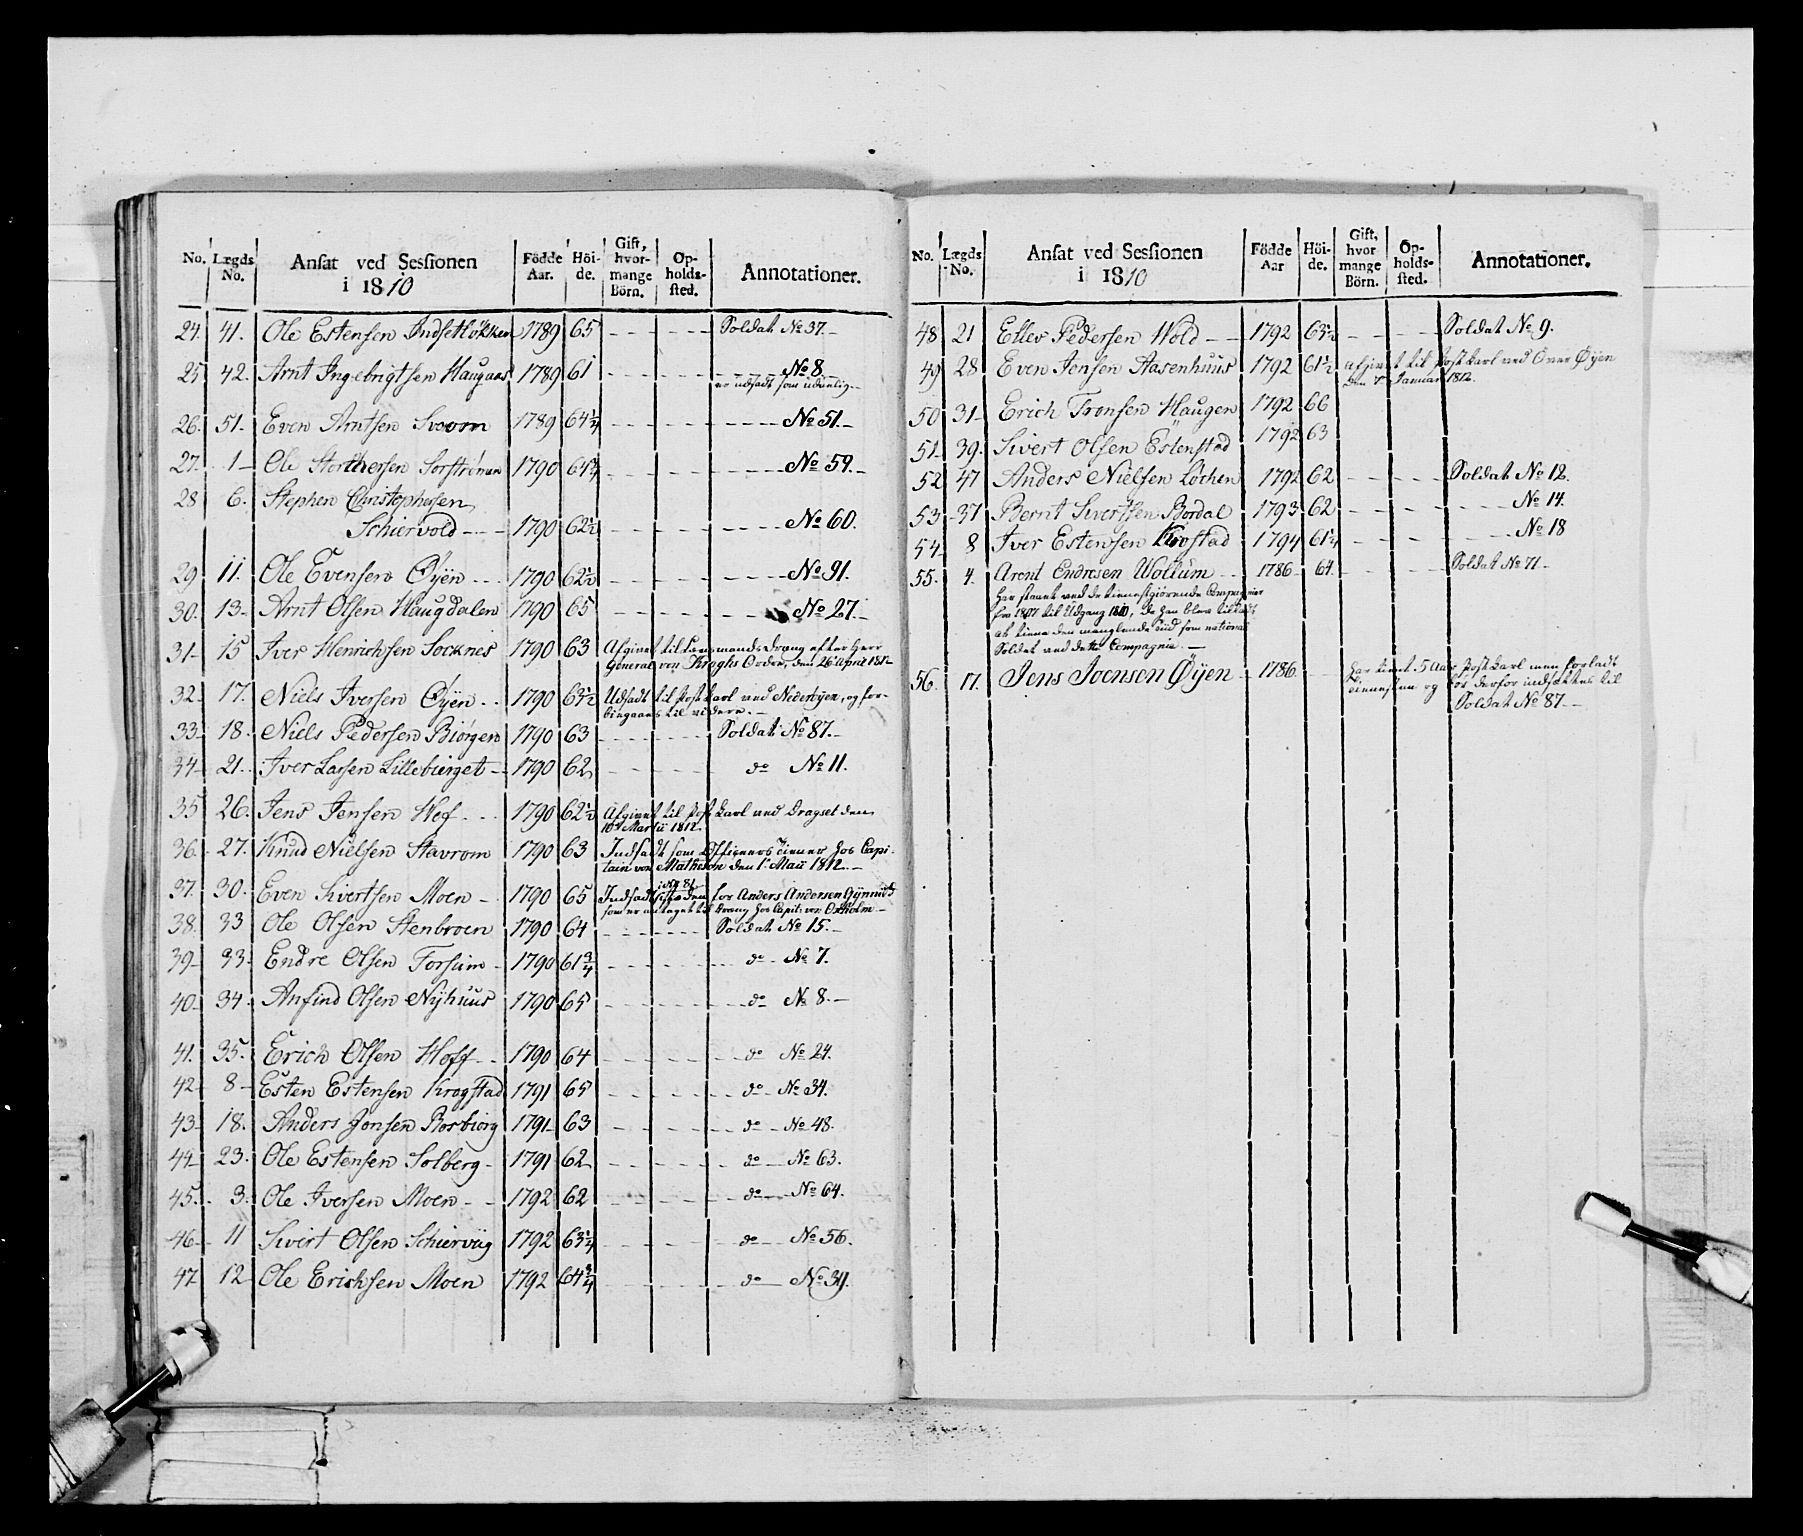 No. Lægds No. Ansat ved Sessionen i 1810 Födde Aar. Höide. Gift, hvormange Börn. Opholdssted. Annotationer.
24. 41. Ole Estensen Indsetløkken 1789 65 Soldat No 37.
25 42. Arnt Ingebrigtsen Haugaas 1789 61 No 8
er udsadt som uduelig
26. 51. Even Arntsen Svoom 1789 64 1/4 No 51.
27. 1 Ole Sorstrømen 1790 No 59.
28 6. Stephen Christophersen
Schiervold 1790 62 1/2 No 60.
29 11. Ole Evensen Øyen 1790 62 1/2 No 91.
30. 13 Arnt Olsen Haugdalen 1790 65 No 27.
31 15 Iver Henrichsen Socknes 1790 63 Afgivet til efter Herr
General von Kraghs Ordre, den 26 April 1812
32. 17. Niels Iversen Øyen 1790 63 1/2 Udsadt til Postkarl ved Nederøyen, og for-
bigaaes til videre.
33 18. Niels Pedersen Biørgen 1790 63 Soldat No 87.
34 21. Iver Larsen Lillebierget 1790 62 do No 11.
35 26. Jens Jensen Hof 1790 62 1/2 Afgivet til Postkarl ved Dragset den
10 Martii 1812.
36. 27. Knud Nielsen Stavrom 1790 63 Indsadt som Officeers Tiener hos Capi-
tain von Matheson den 1 Maii 1812.
37. 30. Even Sivertsen Moen 1790 65 Indsadt for Anders Andersen
som er antaget til Dreng hos Capit: von
38. 33 Ole Olsen Stenbroen 1790 64 Soldat No 15.
39 33. Endre Olsen Forsum 1790 61 3/4 do No 7.
40. 34. Anfind Olsen Nyhuus 1790 65 do No 8.
41. 35. Erich Olsen Hoff 1790 64 do No 24.
42 8 Esten Estensen Krogstad 1791 65 do No 34.
43 18. Anders Jonsen Rosbiørg 1791 63 do No 48.
44 23. Ole Estensen Solberg 1791 62 do No 63.
45. 3. Ole Iversen Moen 1792 62 do No 64.
46 11 Sivert Olsen Schierviig 1792 63 1/4 do No 56.
47 12 Ole Erichsen Moen 1792 64 3/4 do No 39.
No. Lægds No. Ansat ved Sessionen i 1810 Födde Aar Höide. Gift, hvor mange Börn. Opholdssted. Annotationer.
48 21 Ellev Pedersen Wold 1792 63 1/2 Soldat No 9.
49 28 Even Jensen Aasenhuus 1792 61 1/2 Afgivet til Postkarl ved Over Øyen
den 7 Januar 1812.
50 31 Erich Tronsen Haugen 1792 66
51 39. Sivert Olsen Estenstad 1792 63
52 47 Anders Nielsen Løchen 1792 62 Soldat No 12.
53 37 Bernt Sivertsen Bordal 1793 62 No 14.
54 8 Iver Estensen Krostad 1794 No 18
55. 4. Arent Endresen Wollum 1786 64. Soldat No 71
Har staaet ved de tienestgiørende Compagnier
fra 1807 til Udgang 1810, da han blev
at tiene den manglende Tiid som national
Soldat ved dette Compagnie.
56. 17. Jens Joensen Øyen 1786 har tient 5 Aar Postkarl men forladt
tienesten og bør derfor indsættes til
Soldat No 87